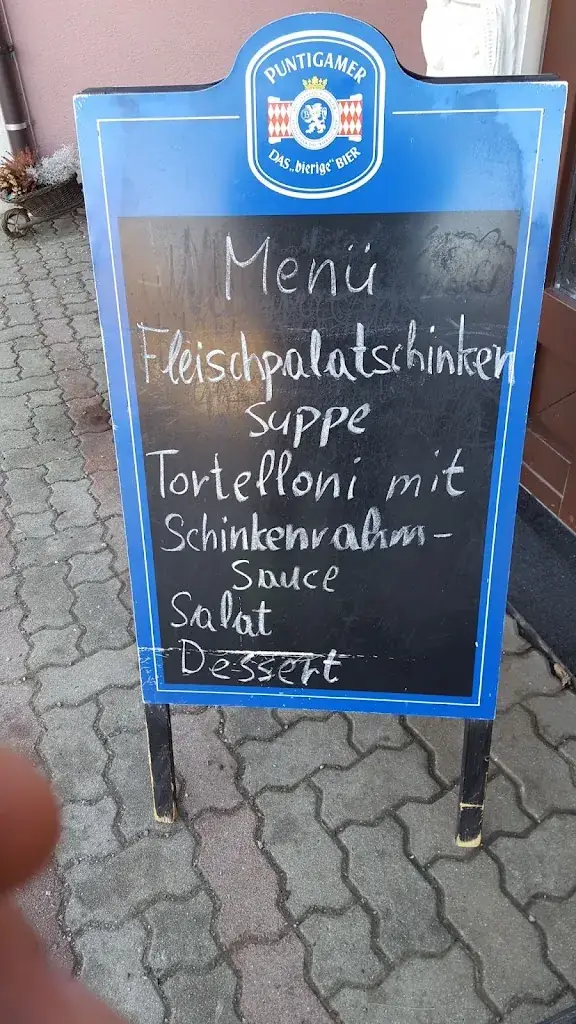 PUNTIGAMER
DAS „bierige" BIER
Menü
Fleischpalatschinken
suppe
Tortelloni mit
Schinkenrahm-
sauce
Salat
Dessert